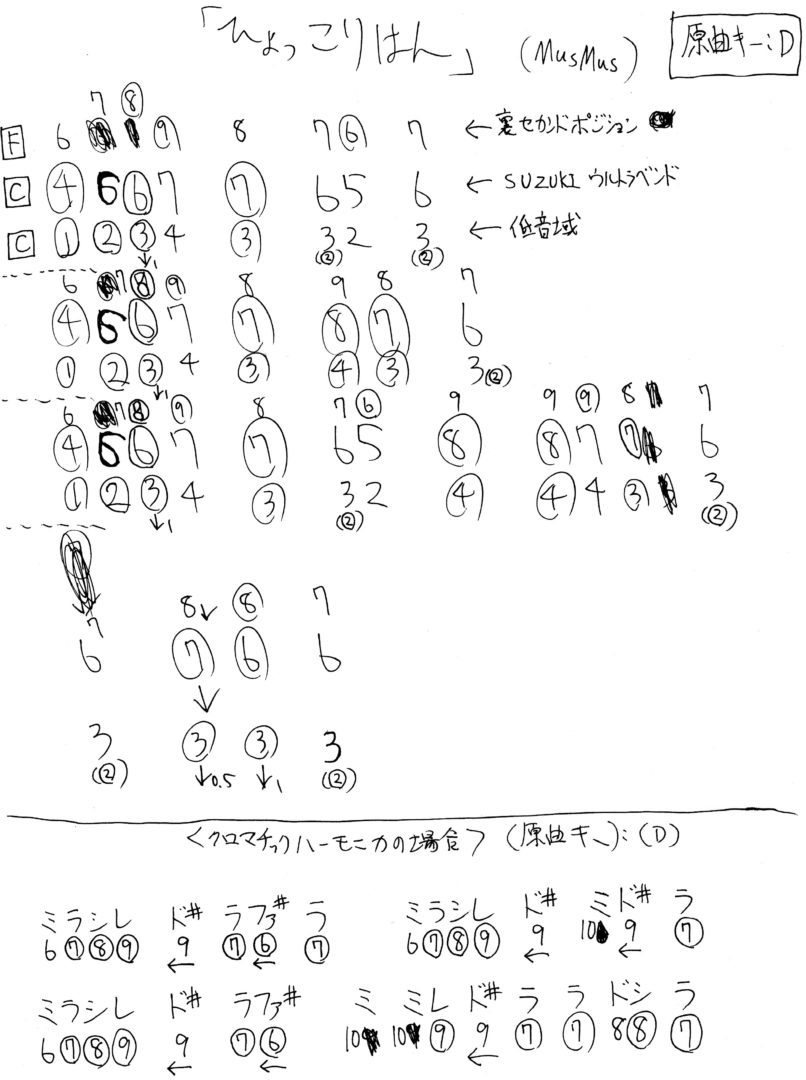 「ひょっこりはん」 (MusMus) 原曲キー:D
7 ⑧
F 6 ⑨ 8 7 ⑥ 7 ← 裏セカンドポジション
C ④ 6 ⑥ 7 ⑦ 6 5 6 ← SUZUKI ウルトラベンド
C ① ② ③ 4 ③ 3 2 3 ← 低音域
↓1 (②) (②)
6 7 ⑧ ⑨ 8 9 8 7
④ 6 ⑥ 7 ⑦ ⑧ ⑦ 6
① ② ③ 4 ③ ④ ③ 3(②)
↓1
6 7 ⑧ ⑨ 8 7 ⑥ 9 9 ⑨ 8 7
④ 6 ⑥ 7 ⑦ 6 5 ⑧ ⑧ 7 ⑦ 6
① ② ③ 4 ③ 3 2 ④ ④ 4 ③ 3
↓1 (②) (②)
7 8↓ ⑧ 7
6 ⑦ ⑥ 6
↓
3 ③ ③ 3
(②) ↓0.5 ↓1 (②)
<クロマチックハーモニカの場合> (原曲キー):(D)
ミラシレ ド# ラファ# ラ ミラシレ ド# ミド# ラ
6⑦⑧⑨ 9 ⑦⑥ ⑦ 6⑦⑧⑨ 9 10 9 ⑦
← ← ← ←
ミラシレ ド# ラファ# ミ ミレ ド# ラ ラ ドシ ラ
6⑦⑧⑨ 9 ⑦⑥ 10 10 ⑨ 9 ⑦ ⑦ 8⑧ ⑦
← ← ←